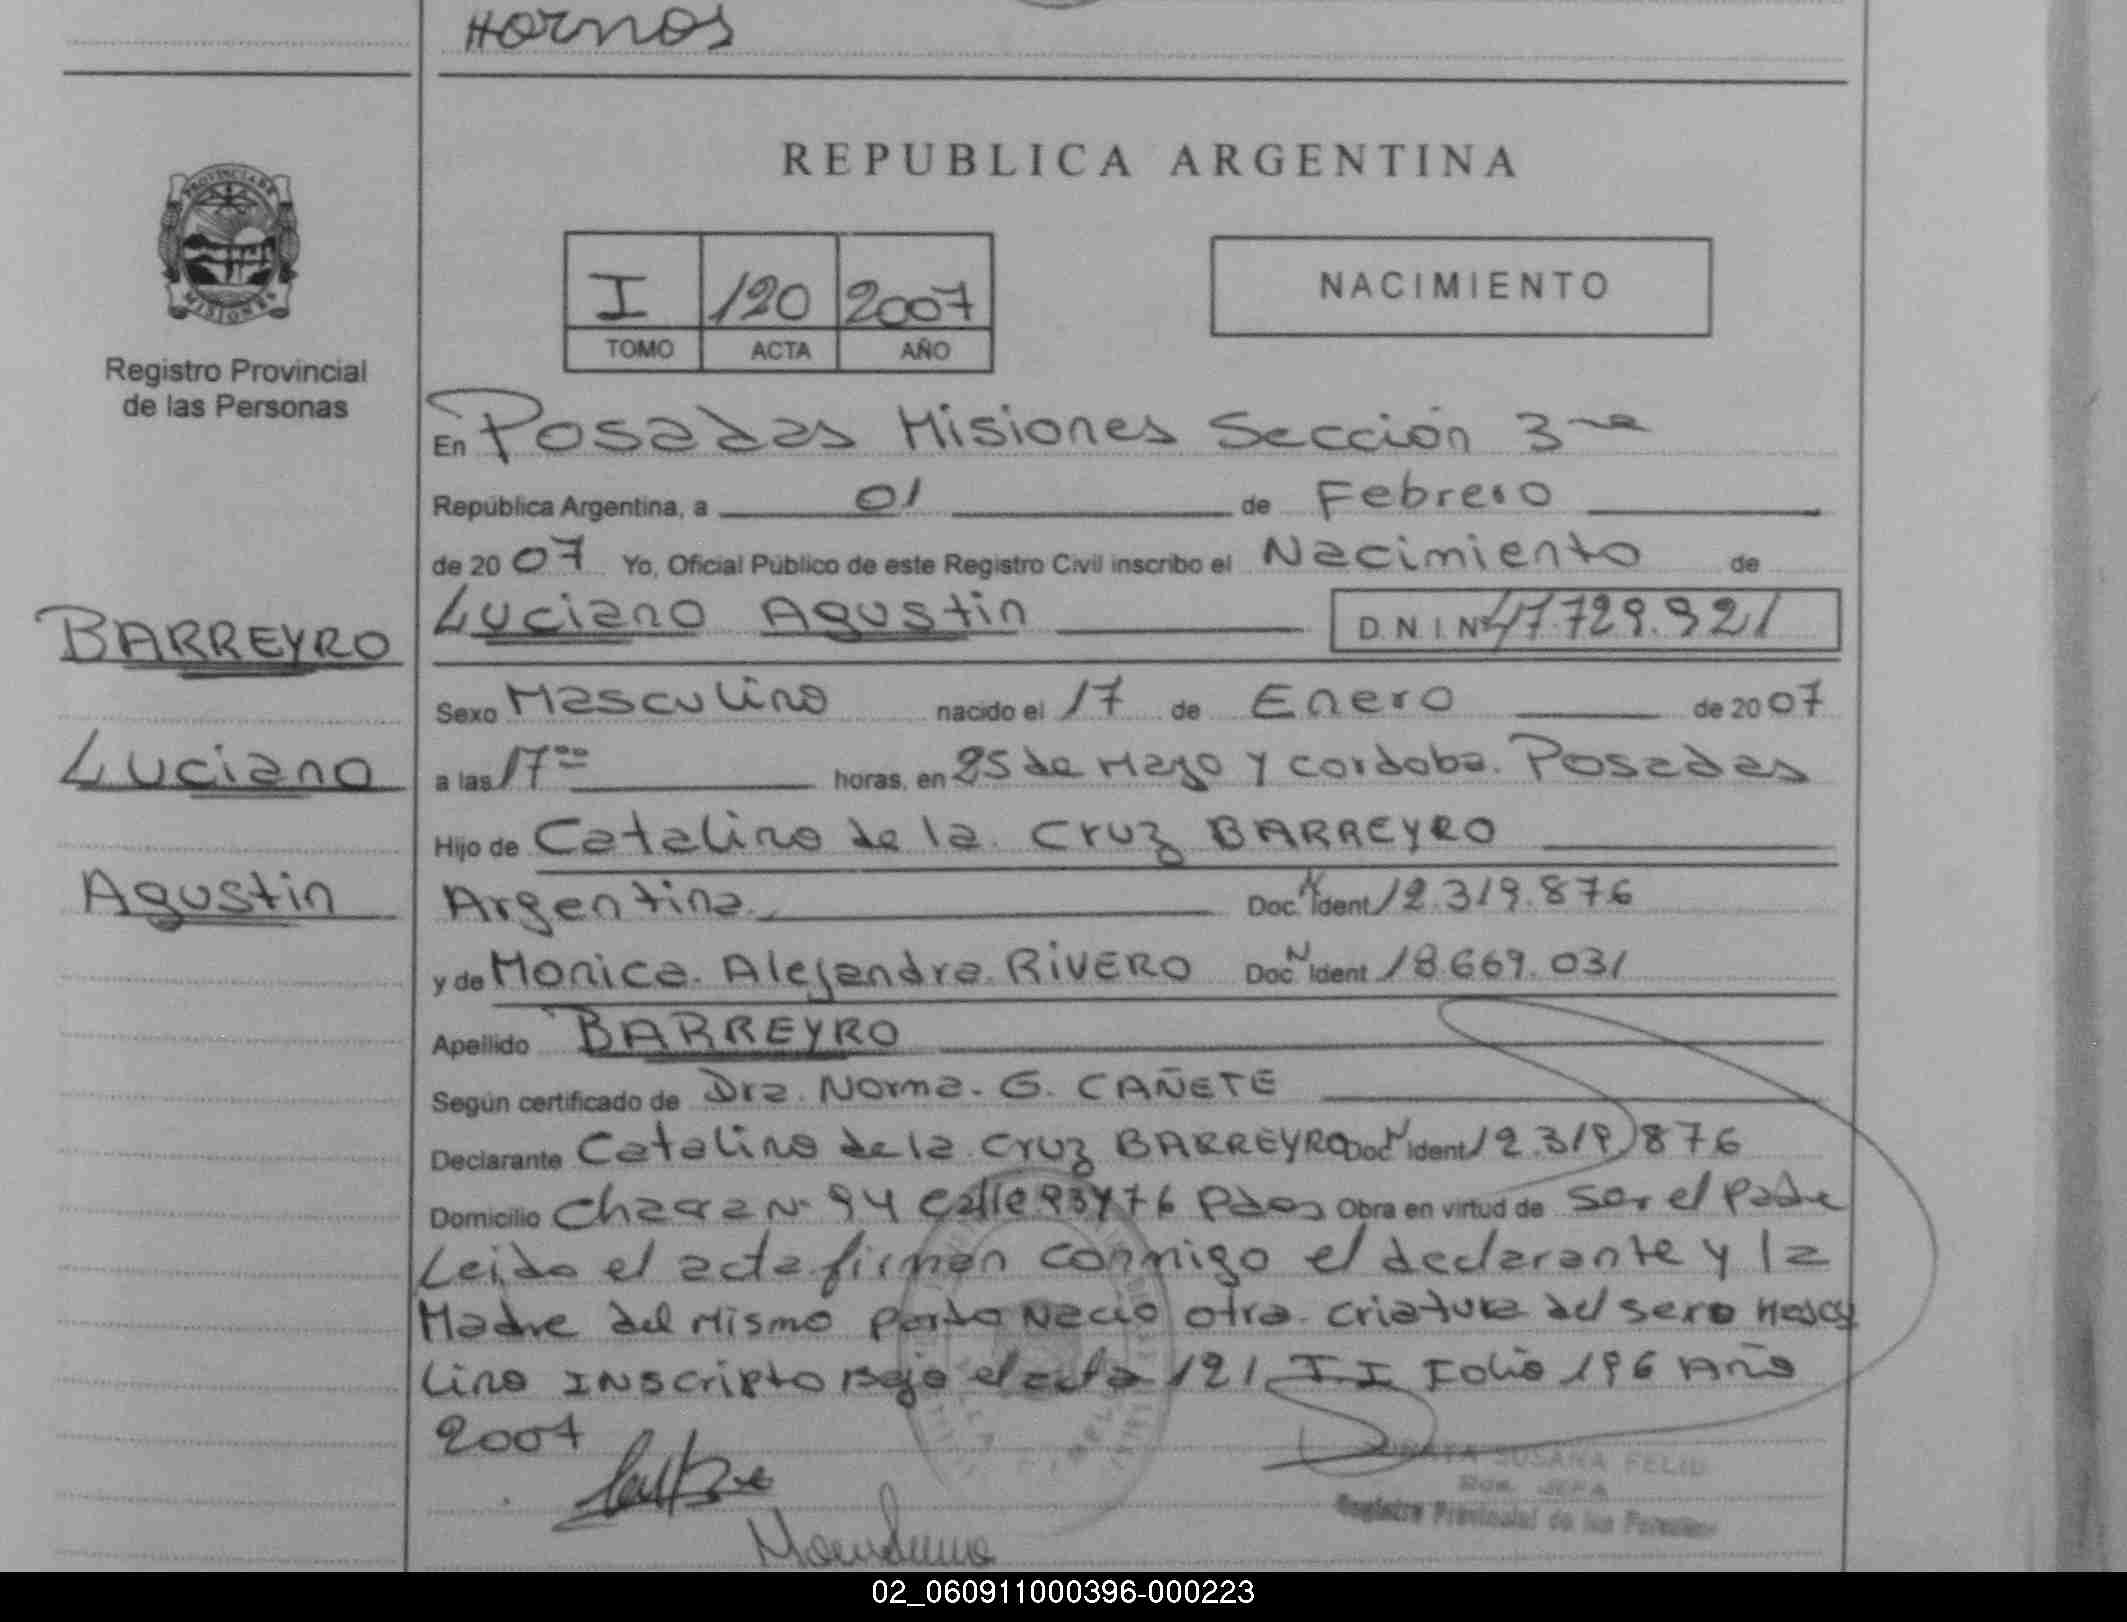 Hornos
PROVINCIA DE
MISIONES
Registro Provincial
de las Personas
REPUBLICA ARGENTINA
I 120 2007
TOMO ACTA AÑO
NACIMIENTO
En Posadas Misiones Sección 3ra
República Argentina, a 01 de Febrero
de 2007 Yo, Oficial Público de este Registro Civil inscribo el Nacimiento de
Luciano Agustin D.N.I. Nº 47.729.921
BARREYRO
Luciano
Agustin
Sexo Masculino nacido el 17 de Enero de 2007
a las 17 00 horas, en 25 de Mayo y cordoba. Posadas
Hijo de Catalino de la Cruz BARREYRO
Argentina Doc. N Ident 12.319.876
y de Monica Alejandra RIVERO Doc N Ident 18.669.031
Apellido BARREYRO
Según certificado de Dra. Norma. G. CAÑETE
Declarante Catalino de la Cruz BARREYRO Doc N Ident 12.319.876
Domicilio Chacra Nº 94 Calle 93 y 76 Pdas Obra en virtud de Ser el Padre
Leida el acta firman conmigo el declarante y la
Madre del Mismo parto Nacio otra criatura del sexo Mascu
lino INscripto Bajo el acta 121 T I Folio 196 Año
2007
SUSANA
Registro Provincial de las Personas
02_060911000396-000223